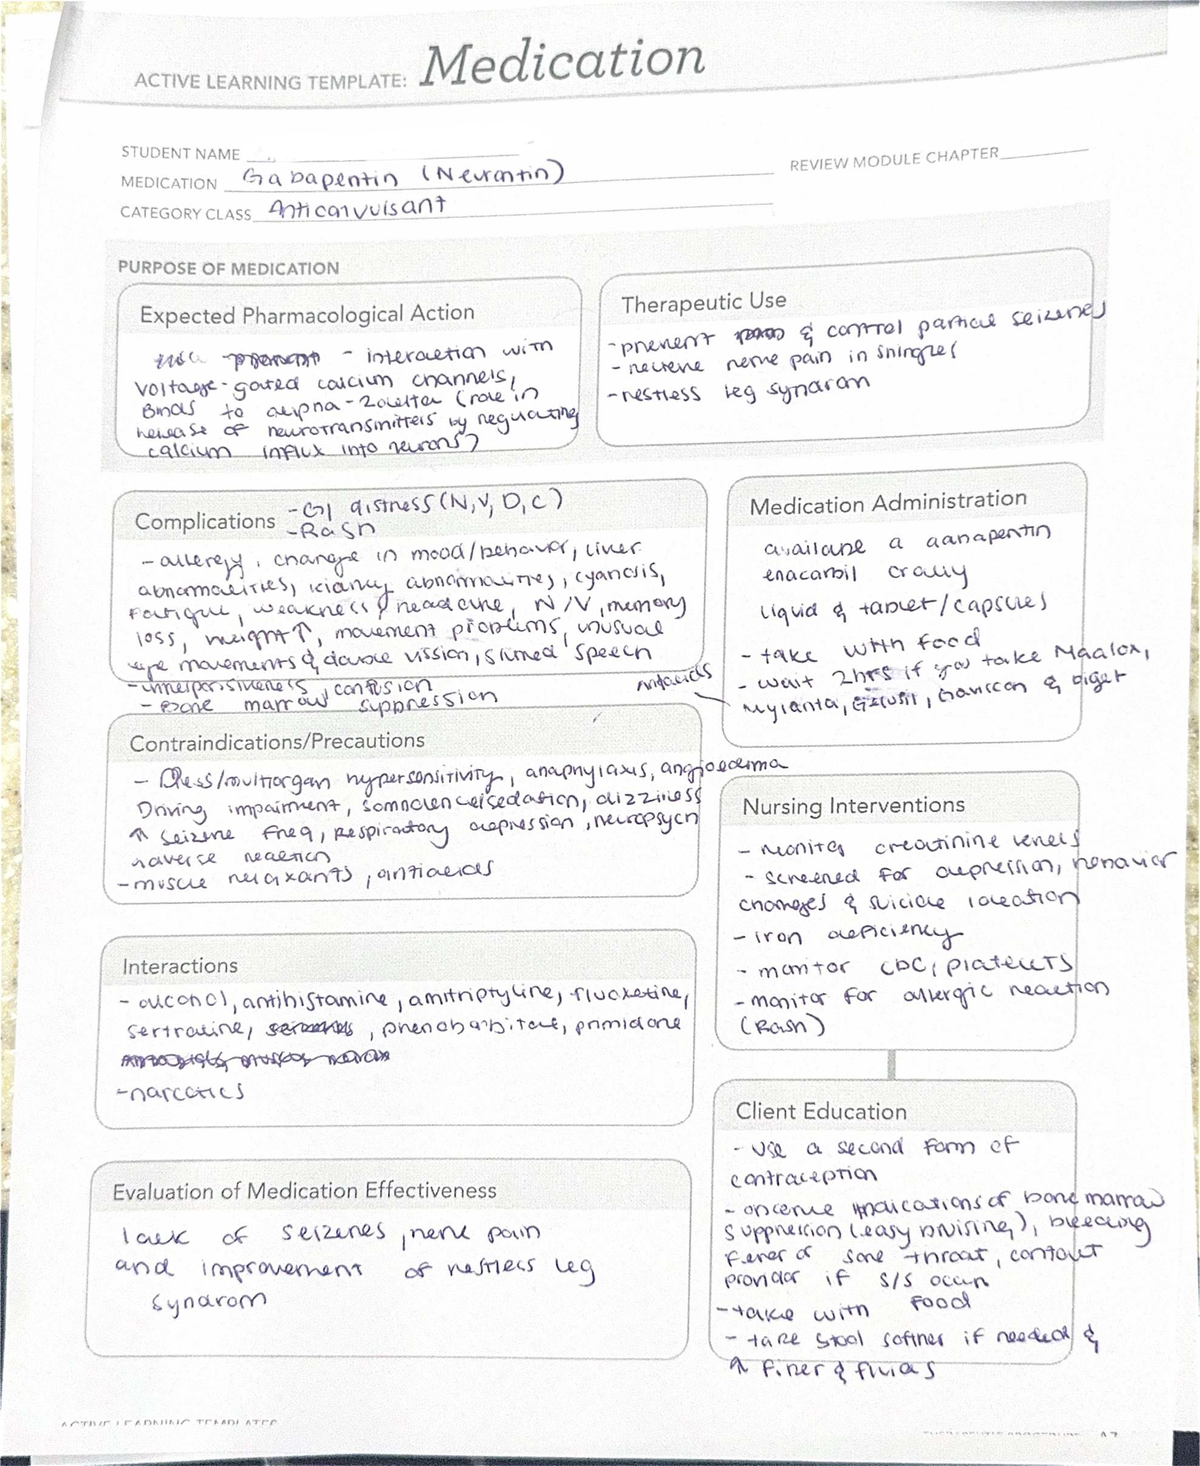 ACTIVE LEARNING TEMPLATE: Medication
STUDENT NAME
MEDICATION Gabapentin (Neurontin)
REVIEW MODULE CHAPTER
CATEGORY CLASS Anticonvulsant
PURPOSE OF MEDICATION
Expected Pharmacological Action
- interaction with
voltage-gated calcium channels,
Binds to alpha-2delta (role in
release of neurotransmitters by regulating
calcium influx into neurons)
Therapeutic Use
- prevent & control partial seizures
- relieve nerve pain in shingles
- restless leg syndrom
Complications
- GI distress (N, V, D, C)
- Rash
- allergy, change in mood/behavior, liver
abnormalities, kidney abnormalities, cyanosis,
Fatigue, weakness, headache, N/V, memory
loss, weight ↑, movement problems, unusual
eye movements & double vission, slurred speech
- unresponsiveness, confusion
- Bone marrow suppression
Medication Administration
availabe a gabapentin
enacarbil orally
liquid & tablet/capsules
- take with food
- wait 2hrs if you take Maalox,
Mylanta, Gaviscon & Diget
Antacids
Contraindications/Precautions
- Dress/multiorgan hypersensitivity, anaphylaxis, angioedema
Driving impairment, somnolence/sedation, dizziness
↑ seizure freq, respiratory depression, neuropsych
adverse reaction
- muscle relaxants, antiacids
Nursing Interventions
- monitor creatinine levels
- screened for depression, behavior
changes & suicide ideation
- iron deficiency
- monitor CBC, platelets
- monitor for allergic reaction
(Rash)
Interactions
- alcohol, antihistamine, amitriptyline, fluoxetine,
sertraline, phenobarbital, primidone
- narcotics
Client Education
- use a second form of
contraception
- observe indications of bone marrow
suppression (easy bruising), bleeding
fever or sore throat, contact
provider if s/s occur
- take with food
- take stool softner if needed &
↑ fiber & fluids
Evaluation of Medication Effectiveness
lack of seizures, nerve pain
and improvement of restless leg
syndrom
ACTIVE LEARNING TEMPLATES